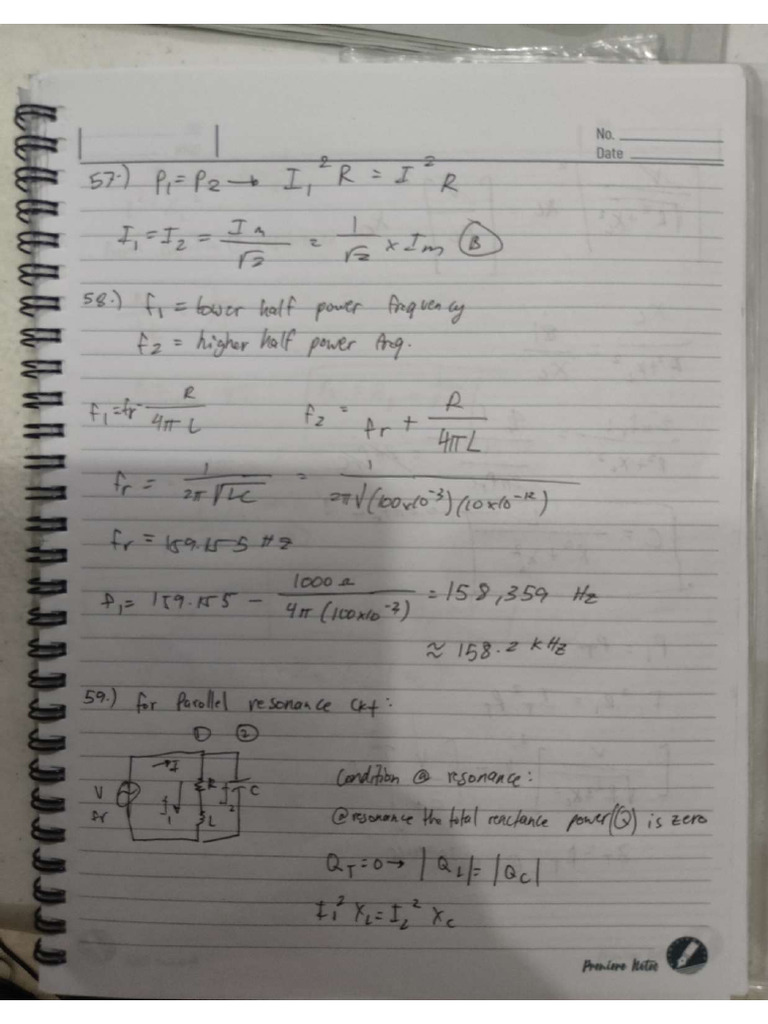 No.
Date
57.) P₁ = P₂ → I₁² R = I² R
I₁ = I₂ = Im/√2 = 1/√2 × Im (B)
58.) f₁ = lower half power frequency
f₂ = higher half power freq.
f₁ = fr - R/4πL f₂ = fr + R/4πL
fr = 1/2π√LC = 1/2π√(100x10⁻³)(10x10⁻¹²)
fr = 159.155 Hz
f₁ = 159.155 - 1000Ω/4π(100x10⁻³) = 158,359 Hz
≈ 158.2 kHz
59.) for Parallel resonance ckt:
① ②
→ I
V fr I₁ R L I₂ C
Condition @ resonance:
@resonance the total reactance power(Q) is zero
QT = 0 → |QL| = |QC|
I₁² XL = I₂² XC
Premiere Notes